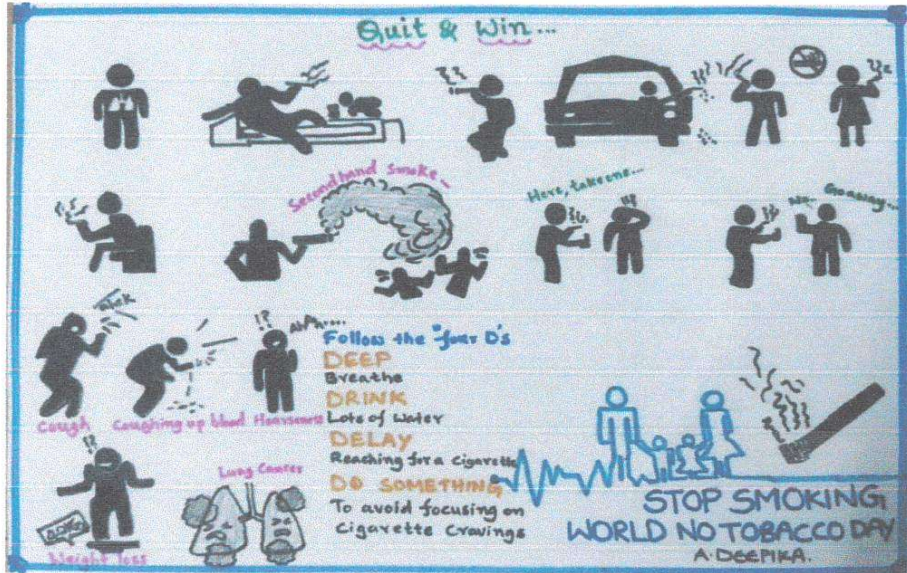 Quit & Win...
Secondhand smoke..
Here, take one...
No..
Go away...
!?
Ahh....
Cough
Coughing up blood
Hoarseness
Follow the "four D's
DEEP
Breathe
DRINK
Lots of water
DELAY
Reaching for a cigarette
DO SOMETHING
To avoid focusing on
Cigarette Cravings
!?
Weight loss
Lung Cancer
STOP SMOKING
WORLD NO TOBACCO DAY
A. DEEPIKA.